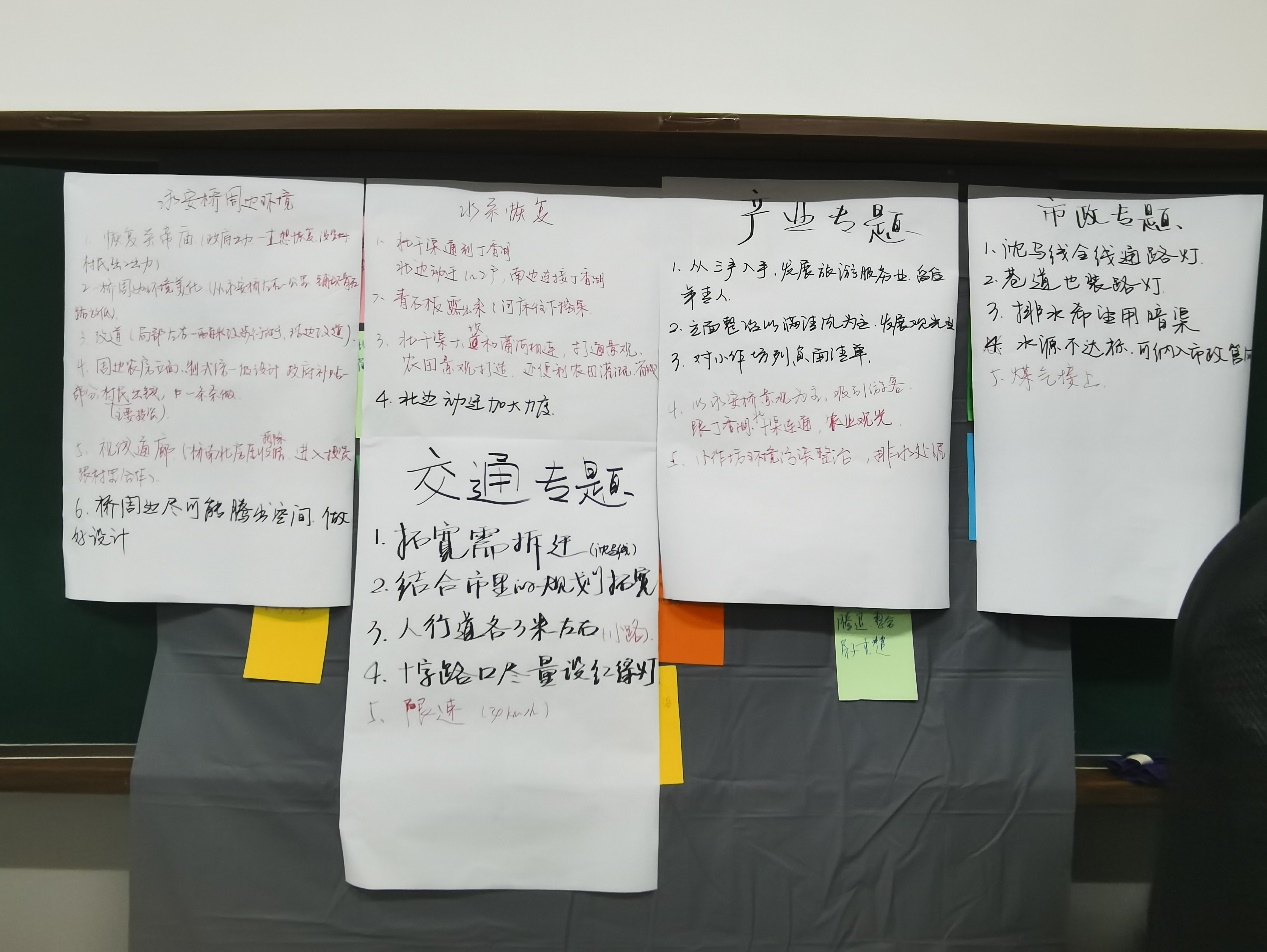 永安桥周边环境
1. 恢复关帝庙(政府主动一直想恢复
村民出工出力)
2. 桥周边环境美化
3. 改道(局部
4. 周边农房立面,制式统一的设计 政府补贴
部分村民出钱,由一条条做
5. 视线通廊(桥南北
6. 桥周边尽可能腾出空间.做
好设计
水系恢复
1. 北干渠通到丁香湖
北边动迁 南边连接丁香湖
2. 青石板露出来(河床往下挖
3. 北干渠 和蒲河相连,打通景观
农田景观打造,还便利农田灌溉
4. 北边动迁加大力度
交通专题
1. 拓宽需拆迁(沈马线)
2. 结合市里的规划拓宽
3. 人行道各3米左右(小路)
4. 十字路口尽量设红绿灯
5. 限速(30km/h)
产业专题
1. 从三产入手,发展旅游服务业,留住
年青人
2. 立面整治以满清风为主.发展观光业
3. 对小作坊列负面清单
4. 以永安桥景观为主,吸引游客
跟丁香湖 干渠连通,农业观光
5. 小作坊环境污染整治,排水处理
腾退
市政专题
1. 沈马线全线通路灯.
2. 巷道也装路灯
3. 排水希望用暗渠
4. 水源不达标.可纳入市政管网
5. 煤气接上